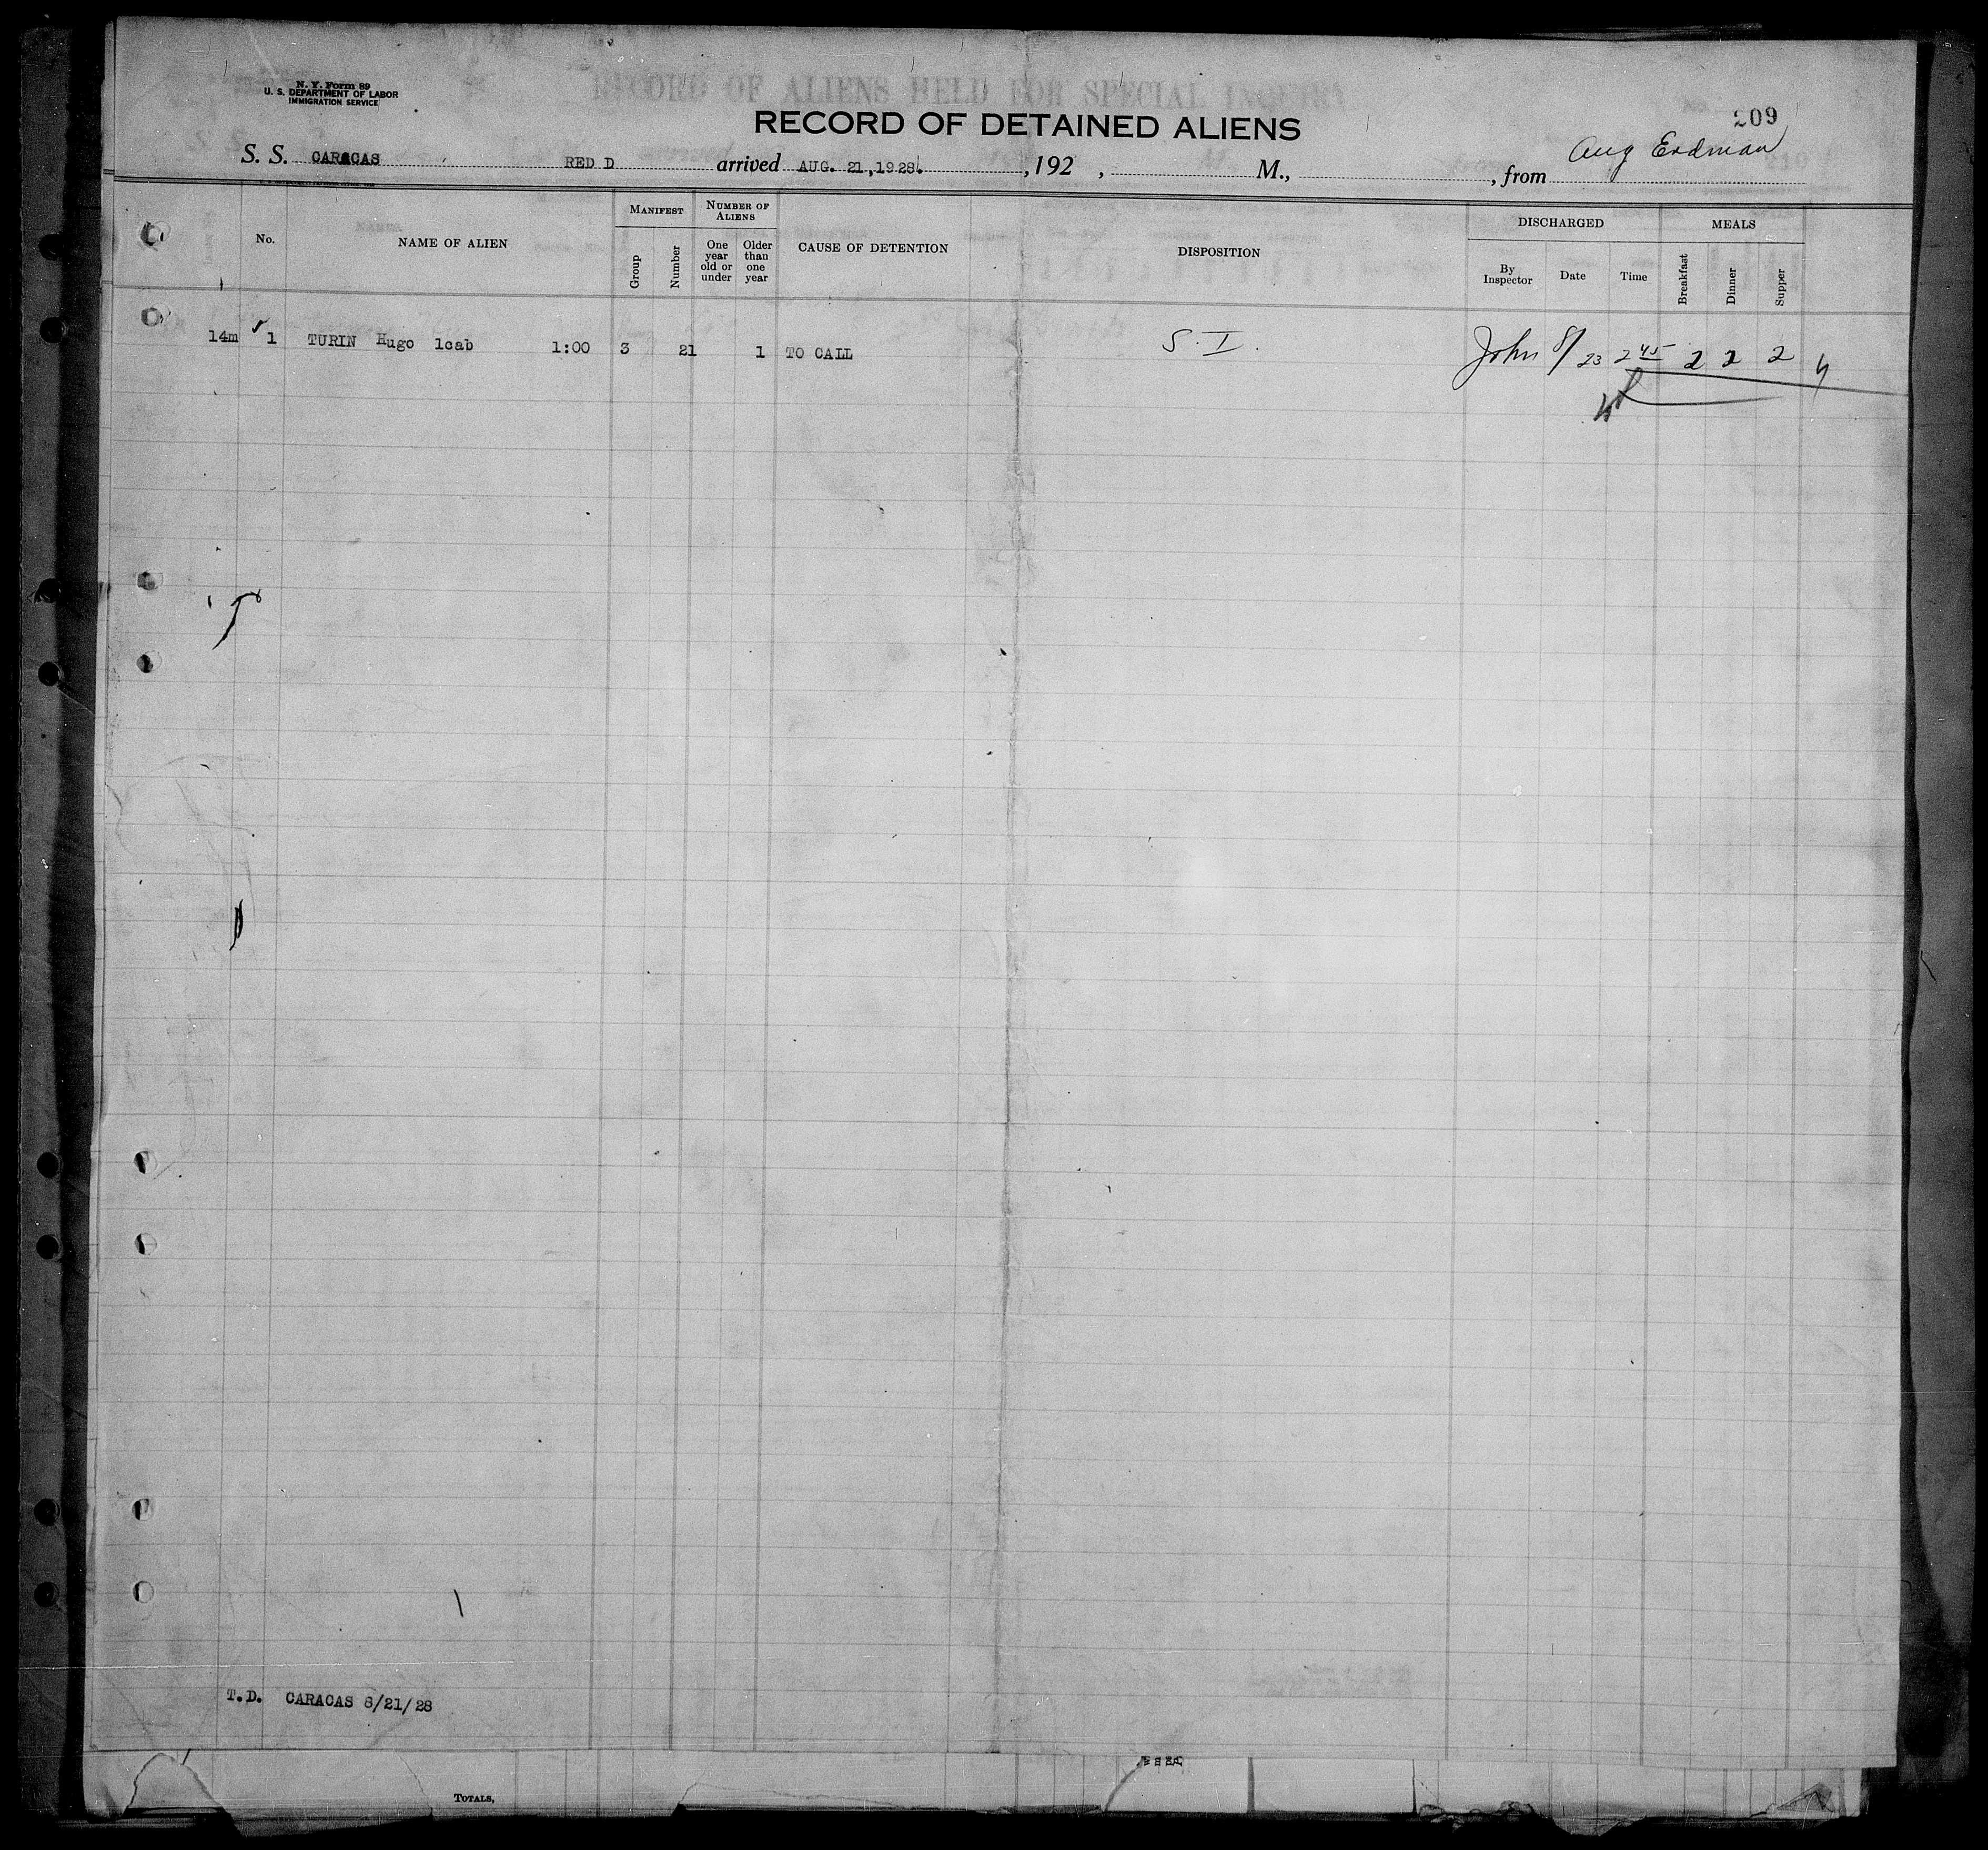 N. Y. Form 89
U. S. DEPARTMENT OF LABOR
IMMIGRATION SERVICE
RECORD OF ALIENS HELD FOR SPECIAL INQUIRY
RECORD OF DETAINED ALIENS
209
S. S. CARACAS RED D arrived AUG. 21, 1928. , 192 , M., , from Aug Erdman
No. NAME OF ALIEN MANIFEST Group Number NUMBER OF ALIENS One year old or under Older than one year CAUSE OF DETENTION DISPOSITION DISCHARGED By Inspector Date Time MEALS Breakfast Dinner Supper
14m 1 TURIN Hugo 1cab 1:00 3 21 1 TO CALL S. I. John 8/23 2 45 2 2 2
T.D. CARACAS 8/21/28
TOTALS,